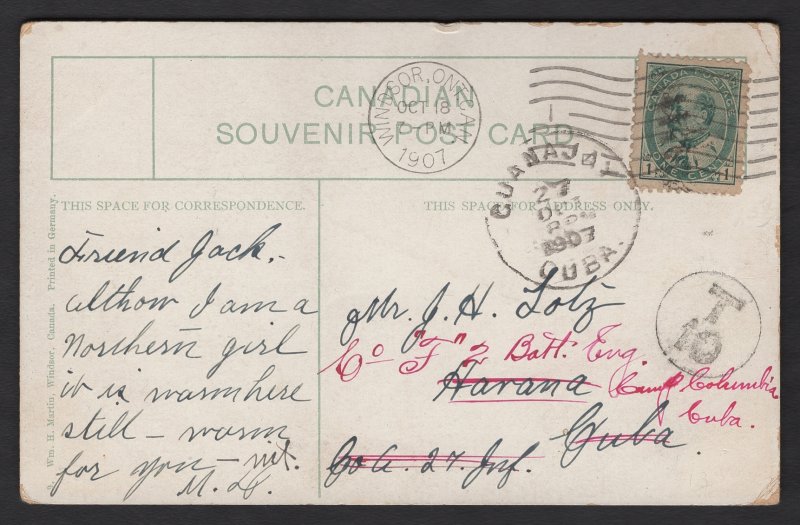 CANADIAN
SOUVENIR POST CARD
WINDSOR, ONT. CAN.
OCT 18
7 - PM
1907
CANADA POSTAGE
1 ONE CENT 1
GUANAJAY
27
1907
CUBA.
T
10
THIS SPACE FOR CORRESPONDENCE.
Friend Jack.-
althow I am a
Northern girl
it is warm here
still - warm
for you - nit.
M. D.
THIS SPACE FOR ADDRESS ONLY.
Mr. J. H. Lotz
Co "F" 2 Batt. Eng.
Havana Camp Columbia
Cuba.
Cuba.
Co A. 27 Inf.
Wm. H. Martin, Windsor, Canada. Printed in Germany.